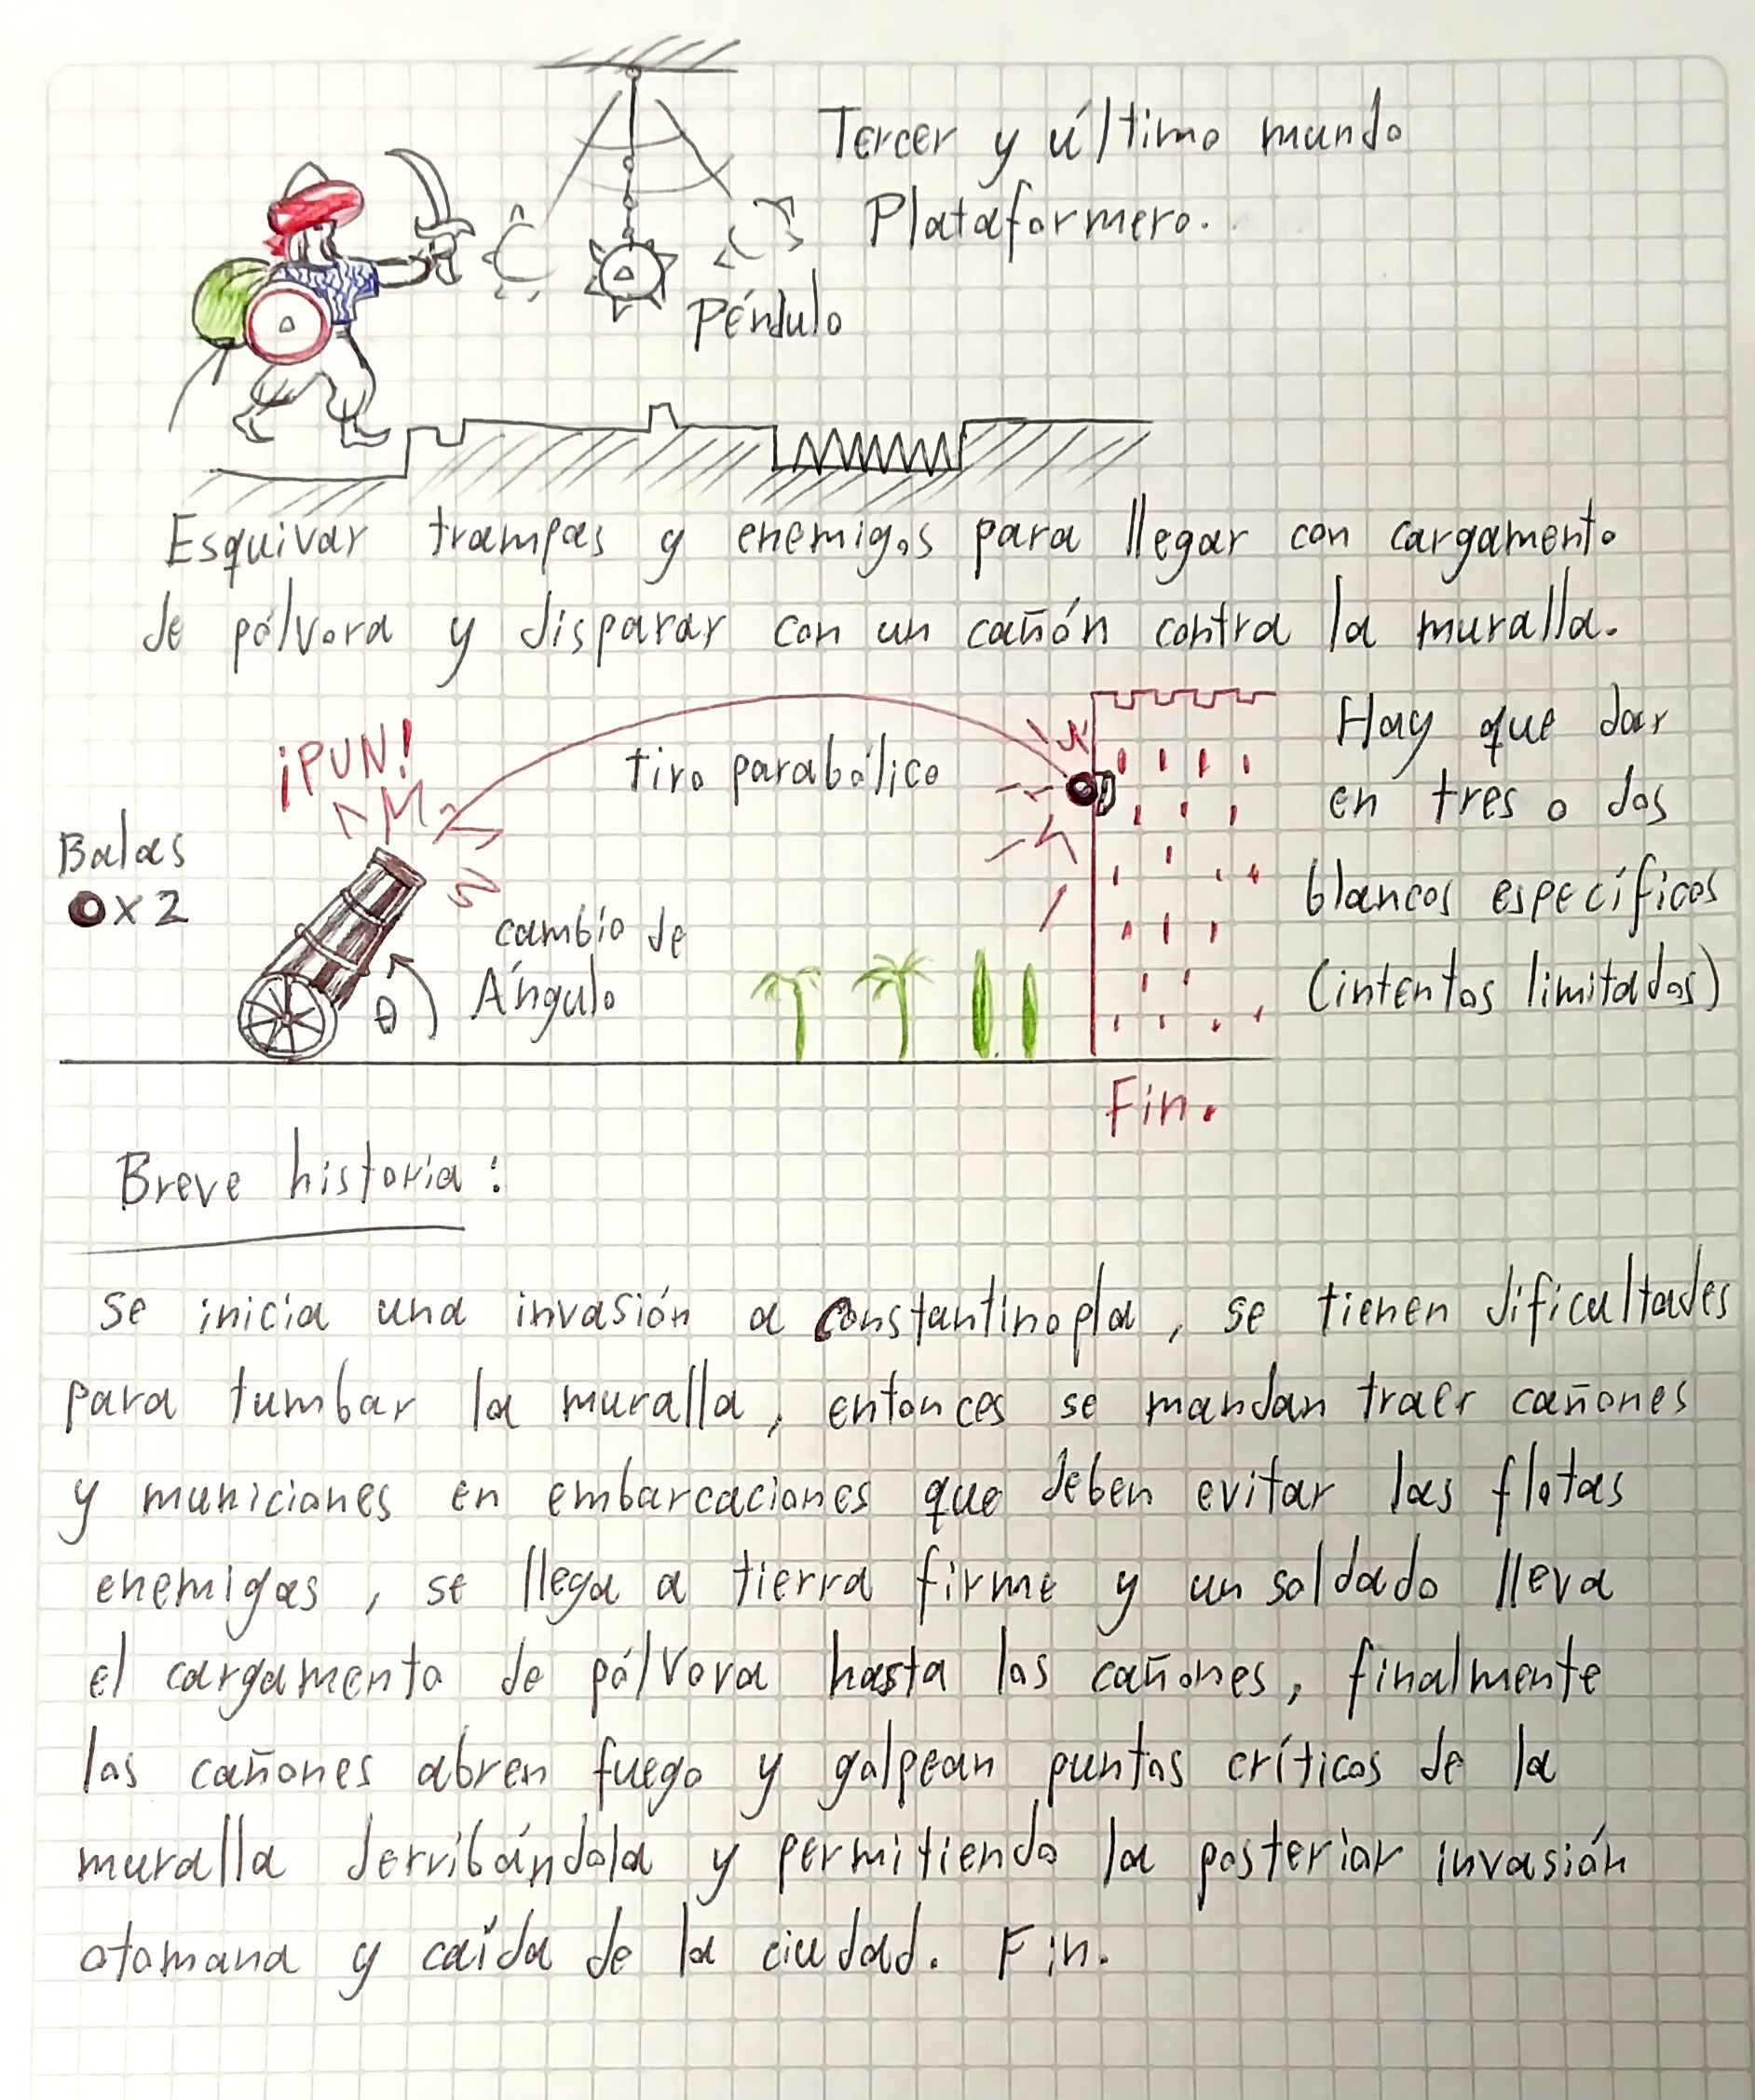 Tercer y último mundo
Plataformero.
Péndulo
Esquivar trampas y enemigos para llegar con cargamento
de pólvora y disparar con un cañón contra la muralla.
¡PUN!
tiro parabólico
Hay que dar
en tres o dos
blancos específicos
(intentos limitados)
Balas
x 2
cambio de
Ángulo
θ
Fin.
Breve historia:
se inicia una invasión a constantinopla, se tienen dificultades
para tumbar la muralla, entonces se mandan traer cañones
y municiones en embarcaciones que deben evitar las flotas
enemigas, se llega a tierra firme y un soldado lleva
el cargamento de pólvora hasta los cañones, finalmente
los cañones abren fuego y golpean puntos críticos de la
muralla derribándola y permitiendo la posterior invasión
otomana y caída de la ciudad. Fin.